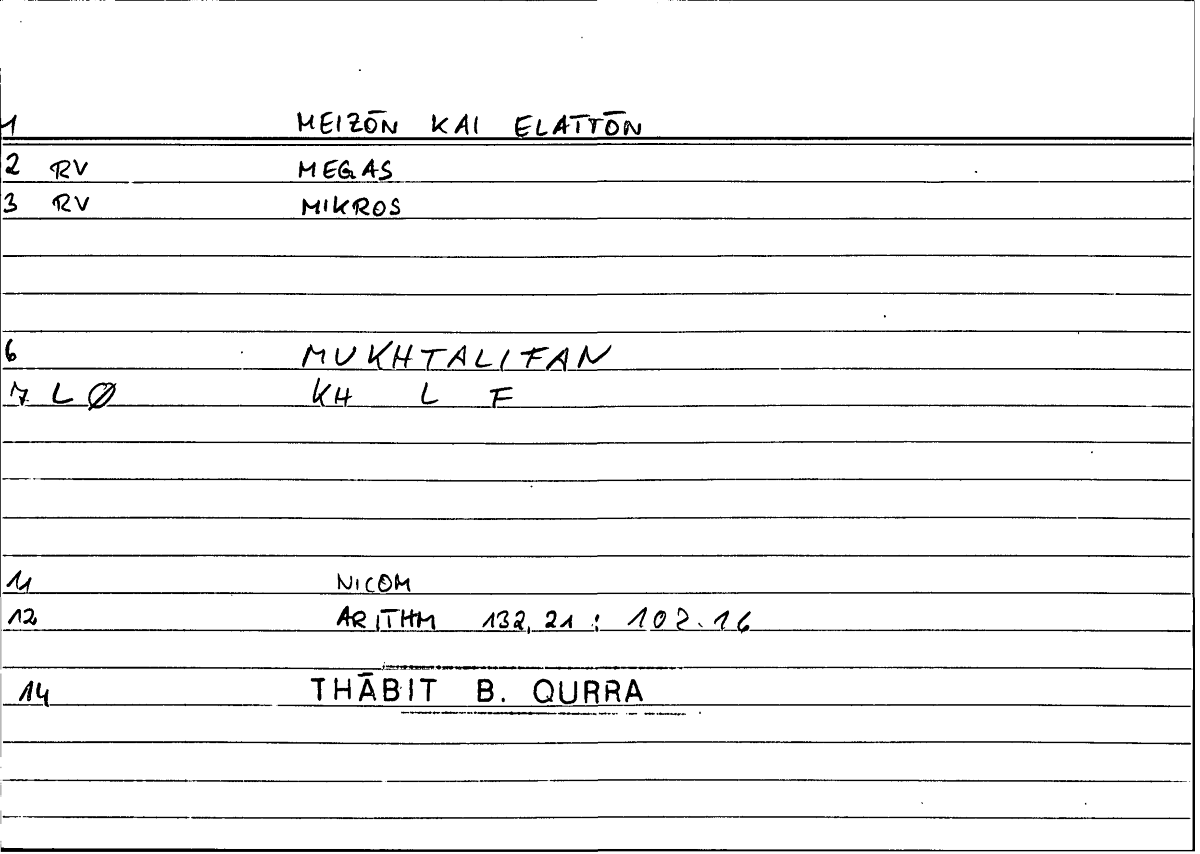 1 MEIZŌN KAI ELATTŌN
2 RV MEGAS
3 RV MIKROS
6 MUKHTALIFAN
7 L Ø KH L F
11 NICOM
12 ARITHM 132,21 : 102.16
14 THĀBIT B. QURRA